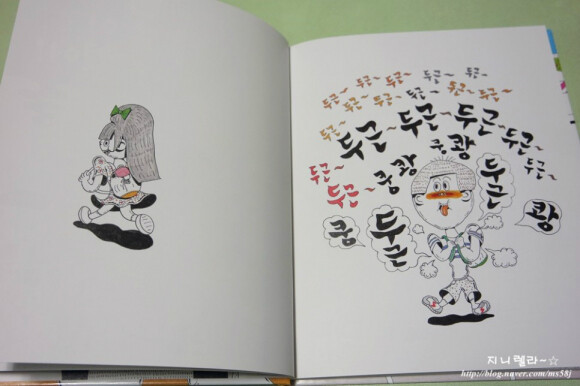 두근~ 두근~ 두근~ 두근~ 두근~
두근~ 두근~ 두근~ 두근~ 두근~ 두근~
두근~ 두근~ 두근~ 두근~ 두근~
쿵쾅
두근~ 쿵쾅 두근
두근~
쿵 두근 쾅
지니렐라~☆
http://blog.naver.com/ms58j